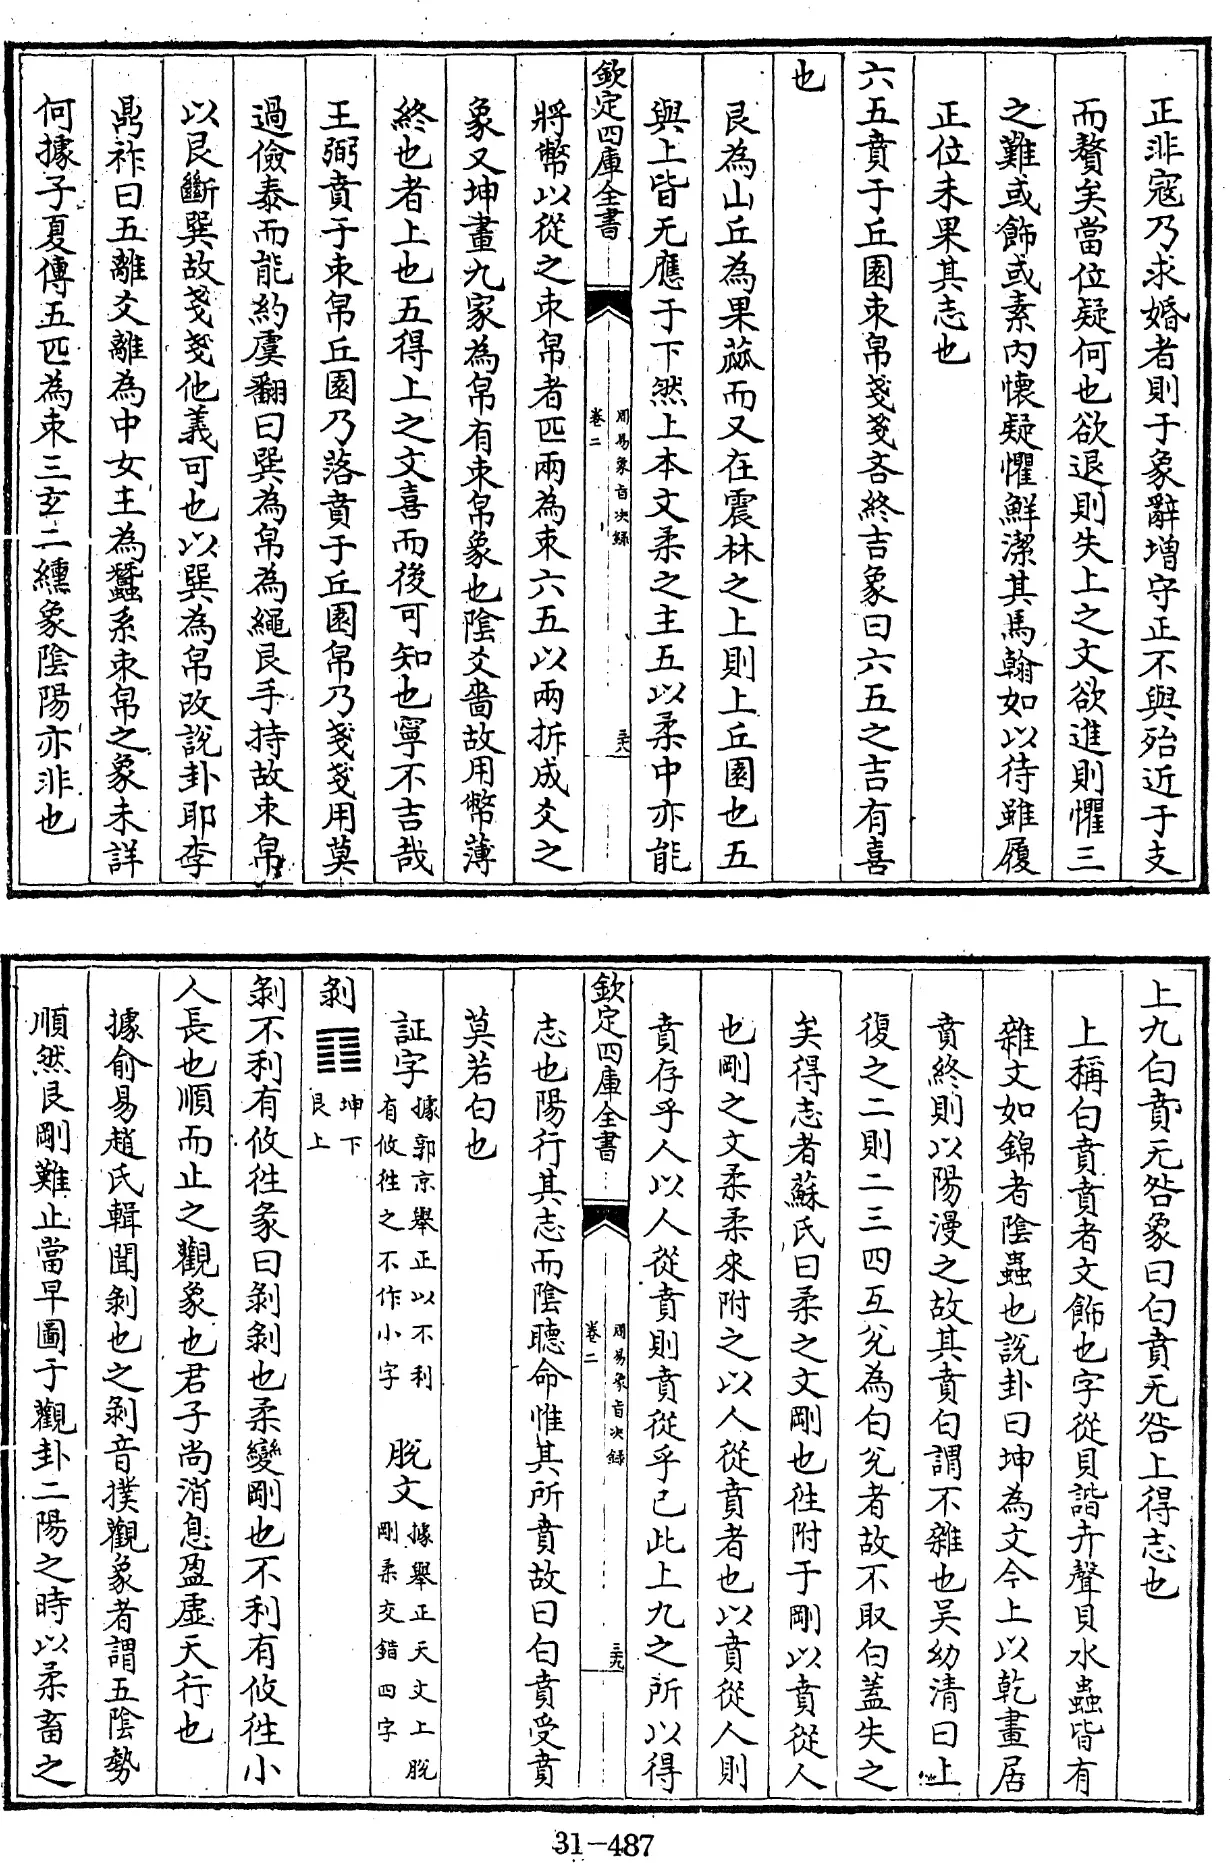 正非寇乃求婚者則于象辭增守正不與殆近于支
而贅矣當位疑何也欲退則失上之文欲進則懼三
之難或飾或素内懷疑懼鮮潔其馬翰如以待雖履
正位未果其志也
六五賁于丘園束帛戔戔吝終吉象曰六五之吉有喜
也
艮為山丘為果蓏而又在震林之上則上丘園也五
與上皆无應于下然上本文柔之主五以柔中亦能
欽定四庫全書
周易象旨決録
卷二
三六
將幣以從之束帛者匹兩為束六五以兩拆成爻之
象又坤畫九家為帛有束帛象也陰爻嗇故用幣薄
終也者上也五得上之文喜而後可知也寧不吉哉
王弼賁于束帛丘園乃落賁于丘園帛乃戔戔用莫
過儉泰而能約虞翻曰巽為帛為繩艮手持故束帛
以艮斷巽故戔戔他義可也以巽為帛改說卦耶李
鼎祚曰五離爻離為中女主為蠶系束帛之象未詳
何據子夏傳五匹為束三玄二纁象陰陽亦非也
上九白賁无咎象曰白賁无咎上得志也
上稱白賁賁者文飾也字從貝諧卉聲貝水蟲皆有
雜文如錦者陰蟲也說卦曰坤為文今上以乾畫居
賁終則以陽漫之故其賁白謂不雜也吴幼清曰上
復之二則二三四互兊為白兊者故不取白蓋失之
矣得志者蘇氏曰柔之文剛也徃附于剛以賁從人
也剛之文柔柔來附之以人從賁者也以賁從人則
賁存乎人以人從賁則賁從乎己此上九之所以得
欽定四庫全書
周易象旨決録
卷二
三九
志也陽行其志而陰聽命惟其所賁故曰白賁受賁
莫若白也
証字 據郭京舉正以不利有攸徃之不作小字 脱文 據舉正天文上脱剛柔交錯四字
剝 ䷖ 坤下艮上
剝不利有攸徃彖曰剝剝也柔變剛也不利有攸徃小
人長也順而止之觀象也君子尚消息盈虛天行也
據俞易趙氏輯聞剝也之剝音撲觀象者謂五陰勢
順然艮剛難止當早圖于觀卦二陽之時以柔畜之
31-487